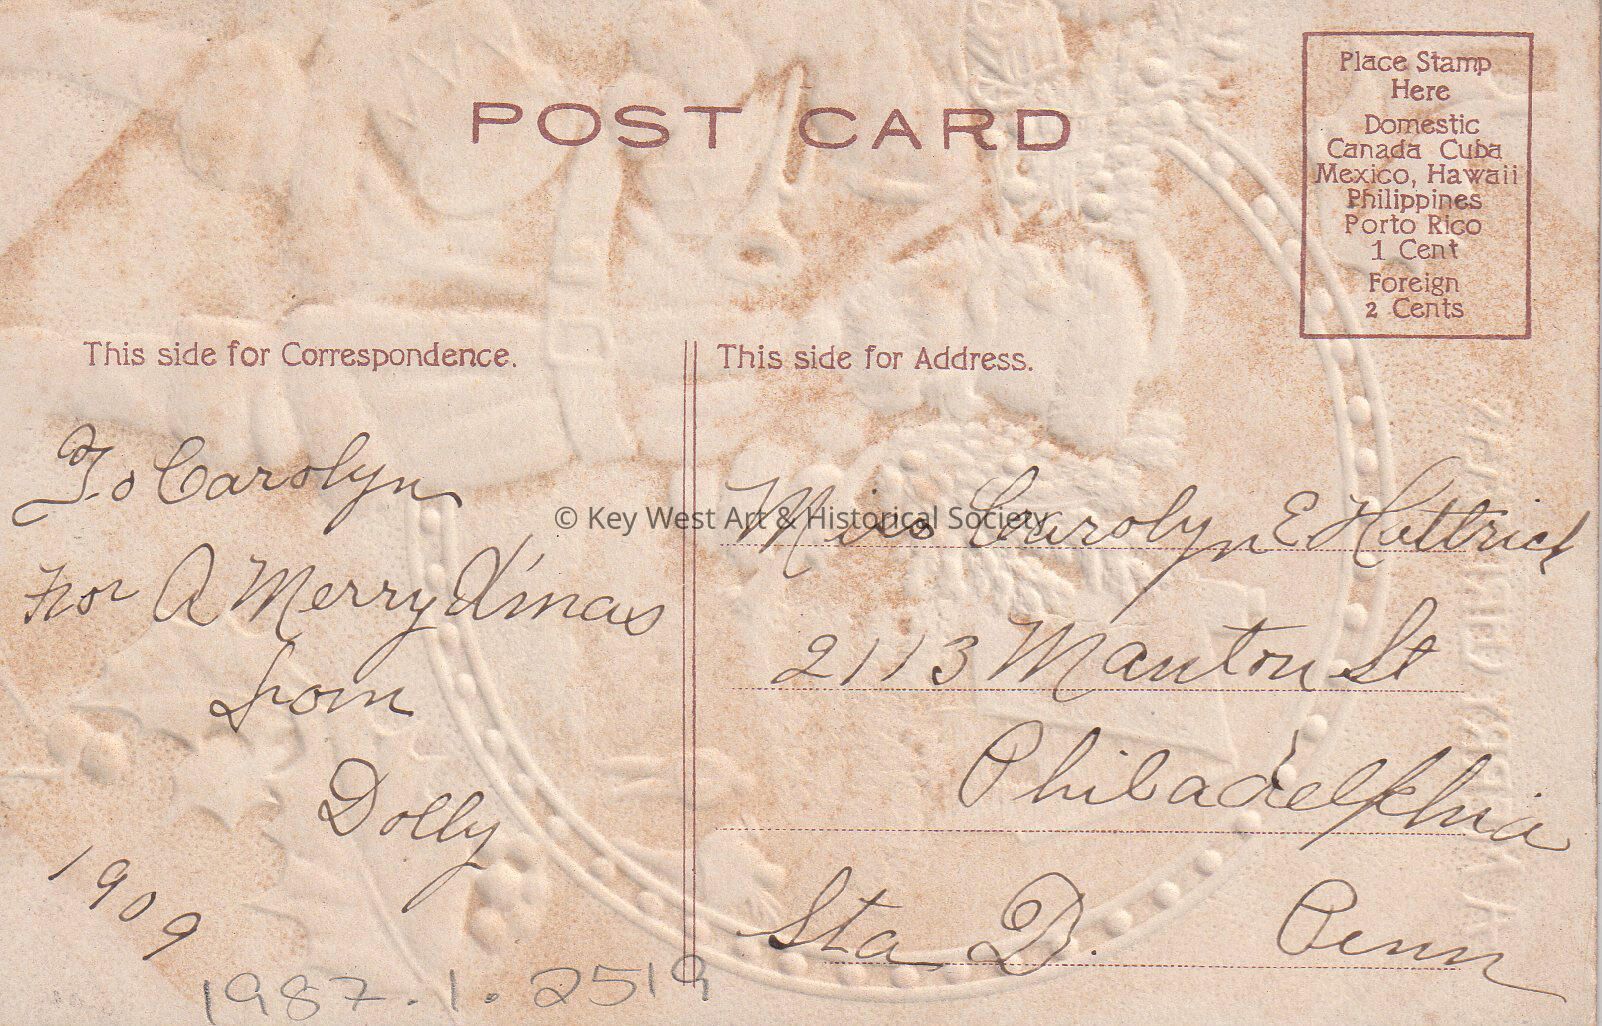 POST CARD
Place Stamp
Here
Domestic
Canada Cuba
Mexico, Hawaii
Philippines
Porto Rico
1 Cent
Foreign
2 Cents
This side for Correspondence.
To Carolyn
For A Merry X'mas
from
Dolly
1909
1987.1.2519
This side for Address.
Miss Carolyn E Hettrich
2113 Manton St
Philadelphia
Sta D. Penn
© Key West Art & Historical Society